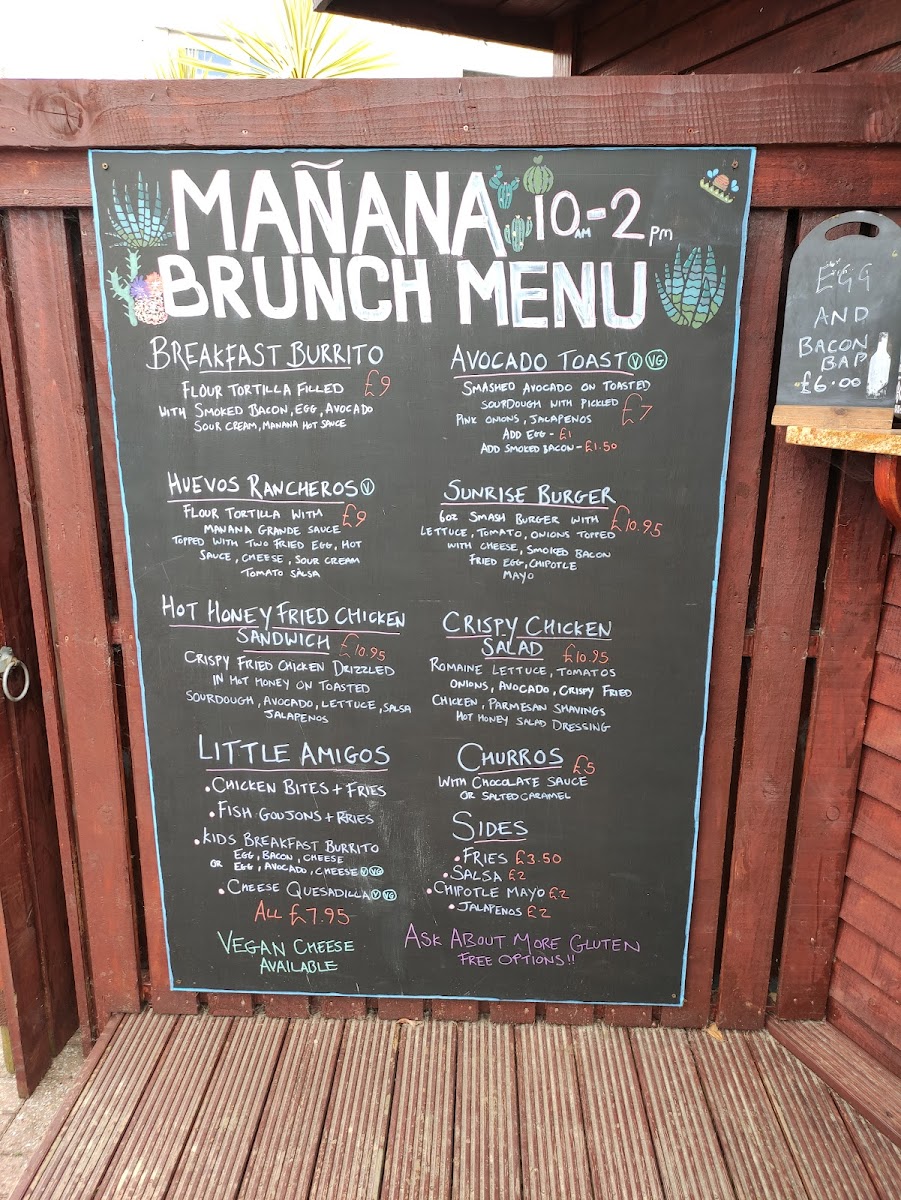 MAÑANA 10AM-2PM
BRUNCH MENU
BREAKFAST BURRITO
FLOUR TORTILLA FILLED £9
WITH SMOKED BACON, EGG, AVOCADO
SOUR CREAM, MANANA HOT SAUCE
HUEVOS RANCHEROS V
FLOUR TORTILLA WITH £9
MANANA GRANDE SAUCE
TOPPED WITH TWO FRIED EGG, HOT
SAUCE, CHEESE, SOUR CREAM
TOMATO SALSA
HOT HONEY FRIED CHICKEN
SANDWICH £10.95
CRISPY FRIED CHICKEN DRIZZLED
IN HOT HONEY ON TOASTED
SOURDOUGH, AVOCADO, LETTUCE, SALSA
JALAPENOS
LITTLE AMIGOS
• CHICKEN BITES + FRIES
• FISH GOUJONS + FRIES
• KIDS BREAKFAST BURRITO
EGG, BACON, CHEESE
OR EGG, AVOCADO, CHEESE V VG
• CHEESE QUESADILLA V VG
ALL £7.95
VEGAN CHEESE
AVAILABLE
AVOCADO TOAST V VG
SMASHED AVOCADO ON TOASTED
SOURDOUGH WITH PICKLED £7
PINK ONIONS, JALAPENOS
ADD EGG - £1
ADD SMOKED BACON - £1.50
SUNRISE BURGER
6OZ SMASH BURGER WITH £10.95
LETTUCE, TOMATO, ONIONS TOPPED
WITH CHEESE, SMOKED BACON
FRIED EGG, CHIPOTLE
MAYO
CRISPY CHICKEN
SALAD £10.95
ROMAINE LETTUCE, TOMATOS
ONIONS, AVOCADO, CRISPY FRIED
CHICKEN, PARMESAN SHAVINGS
HOT HONEY SALAD DRESSING
CHURROS £5
WITH CHOCOLATE SAUCE
OR SALTED CARAMEL
SIDES
• FRIES £3.50
• SALSA £2
• CHIPOTLE MAYO £2
• JALAPENOS £2
ASK ABOUT MORE GLUTEN
FREE OPTIONS!!
EGG
AND
BACON
BAP
£6.00